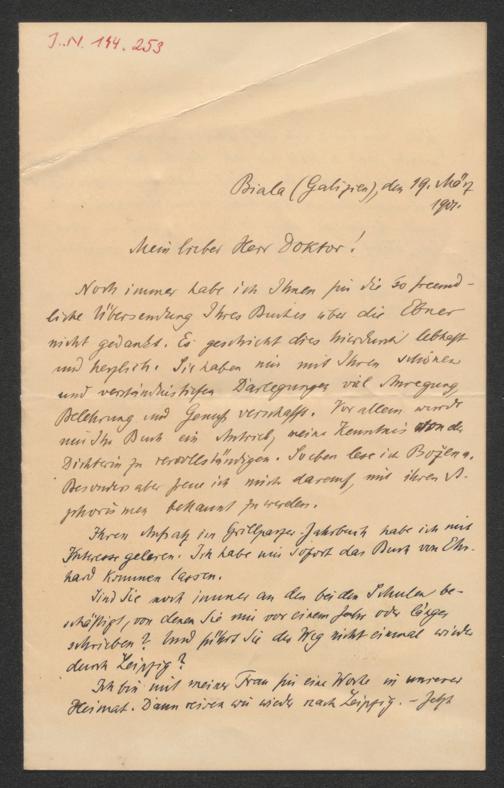 I.N. 144.253
Biala (Galizien), den 19. März
1901.
Mein lieber Herr Doktor!
Noch immer habe ich Ihnen für die so freund-
liche Übersendung Ihres Buches über die Ebner
nicht gedankt. Es geschieht dies hierdurch lebhaft
und herzlich. Sie haben mir mit Ihren schönen
und verständnistiefen Darlegungen viel Anregung,
Belehrung und Genuß verschafft. Vor allem wurde
mir Ihr Buch ein Antrieb, meine Kenntnis von der
Dichterin zu vervollständigen. Soeben lese ich Božena.
Besonders aber freue ich mich darauf, mit ihren A-
phorismen bekannt zu werden.
Ihren Aufsatz im Grillparzer-Jahrbuch habe ich mit
Interesse gelesen. Ich habe mir sofort das Buch von Ehr-
hard kommen lassen.
Sind Sie noch immer an den beiden Schulen be-
schäftigt, von denen Sie mir vor einem Jahr oder länger
schrieben? Und führt Sie der Weg nicht einmal wieder
durch Leipzig?
Ich bin mit meiner Frau für eine Woche in unserer
Heimat. Dann reisen wir wieder nach Leipzig. – Jetzt